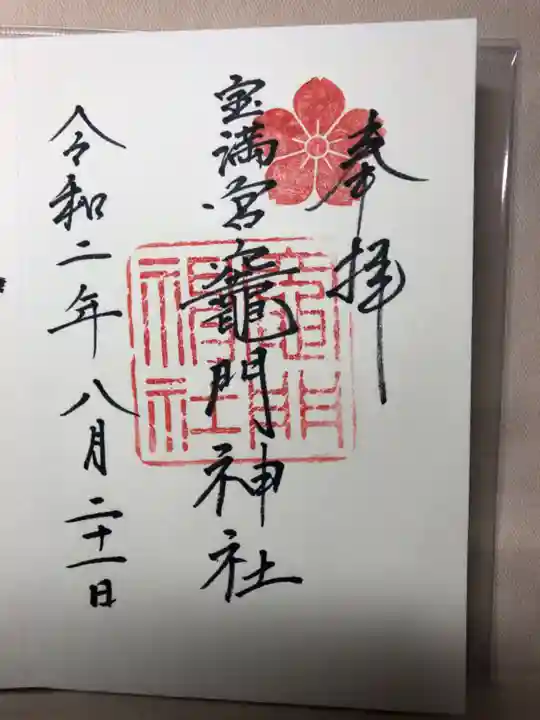 奉拝
宝満宮竈門神社
竈門神社
令和二年八月二十一日